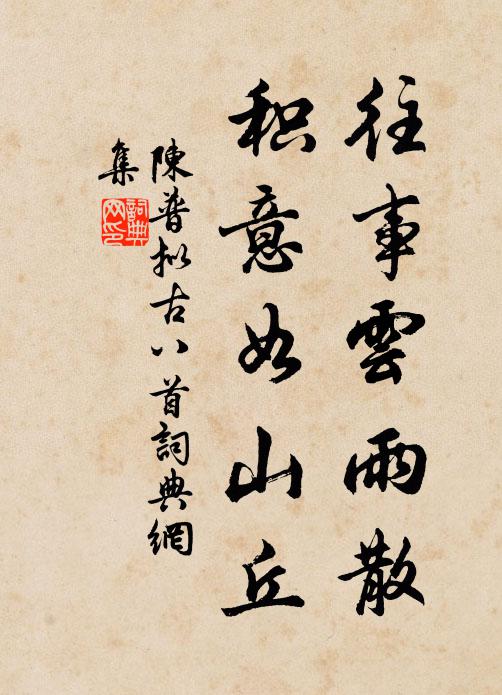 往事雲雨散
积意如山丘
陳普拟古八首詞典網
集
詞典
网印